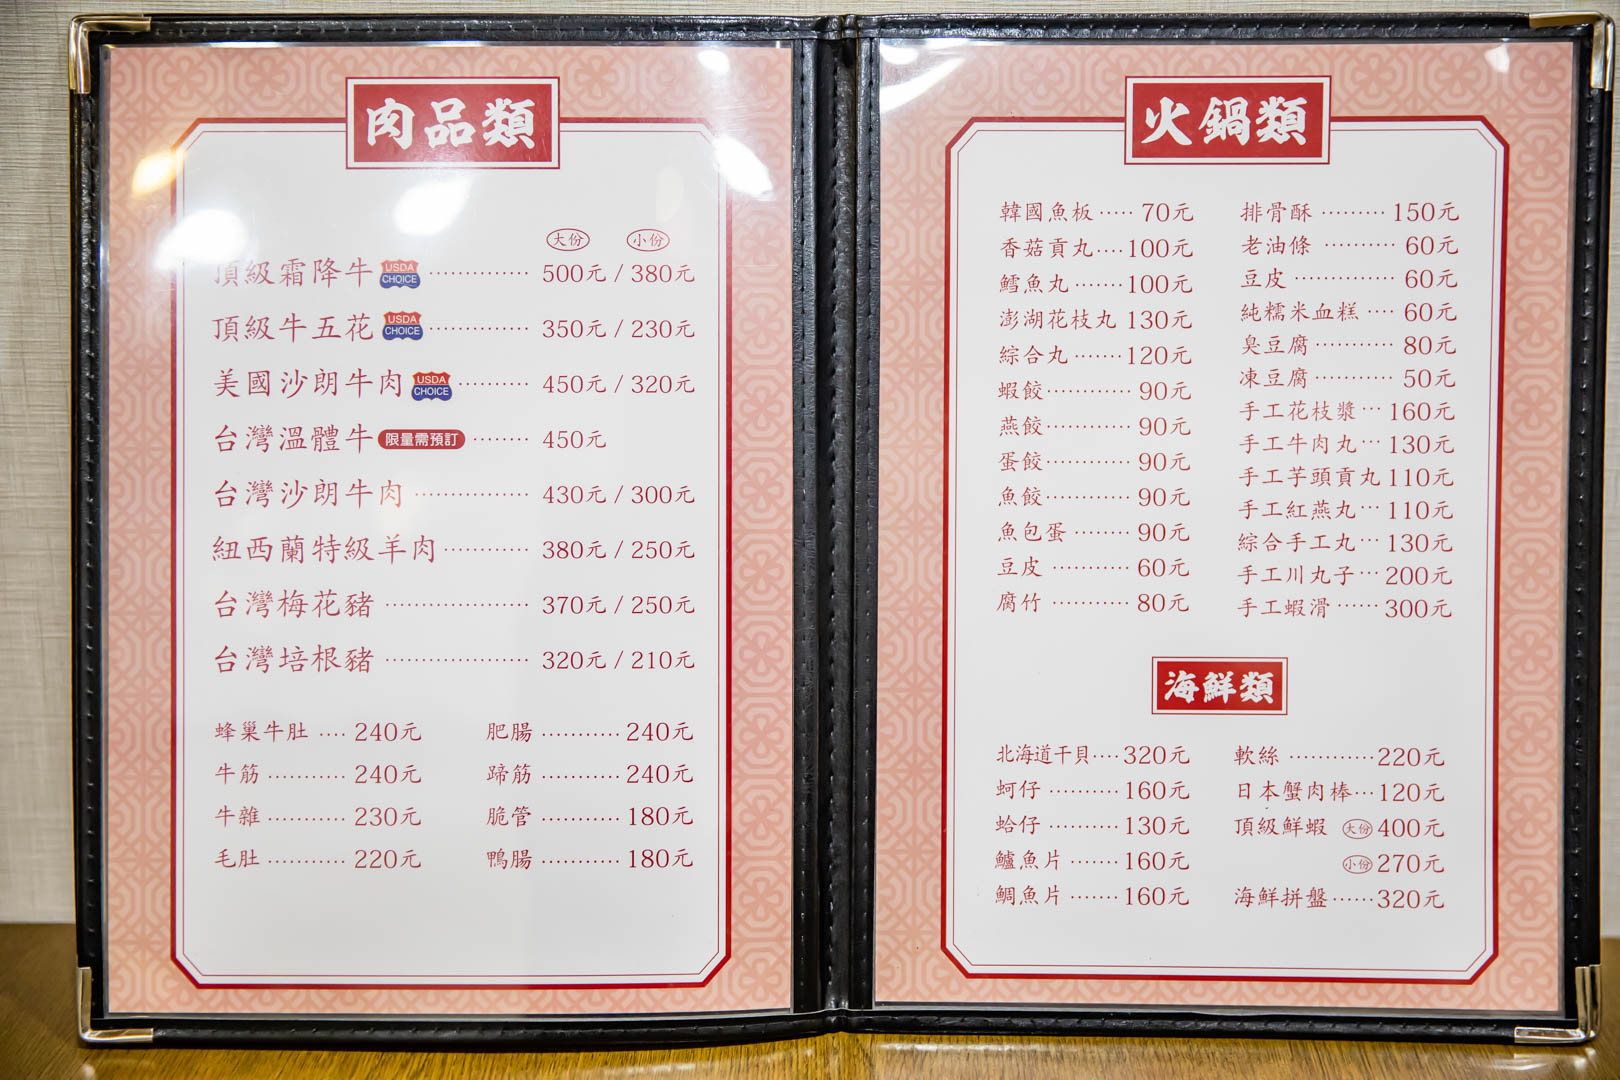 肉品類
大份 小份
頂級霜降牛 USDA CHOICE ………… 500元 / 380元
頂級牛五花 USDA CHOICE ………… 350元 / 230元
美國沙朗牛肉 USDA CHOICE ……… 450元 / 320元
台灣溫體牛 限量需預訂 ……… 450元
台灣沙朗牛肉 ………… 430元 / 300元
紐西蘭特級羊肉 ………… 380元 / 250元
台灣梅花豬 ………… 370元 / 250元
台灣培根豬 ………… 320元 / 210元
蜂巢牛肚 …. 240元
牛筋 ……… 240元
牛雜 ……… 230元
毛肚 ……… 220元
肥腸 ……… 240元
蹄筋 ……… 240元
脆管 ……… 180元
鴨腸 ……… 180元
火鍋類
韓國魚板 ….. 70元
香菇貢丸 …. 100元
鱈魚丸 ……. 100元
澎湖花枝丸 130元
綜合丸 ……. 120元
蝦餃 ………… 90元
燕餃 ………… 90元
蛋餃 ………… 90元
魚餃 ………… 90元
魚包蛋 ……… 90元
豆皮 ………… 60元
腐竹 ………… 80元
排骨酥 ……… 150元
老油條 ……… 60元
豆皮 ………… 60元
純糯米血糕 …. 60元
臭豆腐 ……… 80元
凍豆腐 ……… 50元
手工花枝漿 … 160元
手工牛肉丸 … 130元
手工芋頭貢丸 110元
手工紅燕丸 … 110元
綜合手工丸 … 130元
手工川丸子 … 200元
手工蝦滑 …… 300元
海鮮類
北海道干貝 …. 320元
蚵仔 ……… 160元
蛤仔 ……… 130元
鱸魚片 ……. 160元
鯛魚片 ……. 160元
軟絲 ………… 220元
日本蟹肉棒 … 120元
頂級鮮蝦 大份 400元
小份 270元
海鮮拼盤 …… 320元